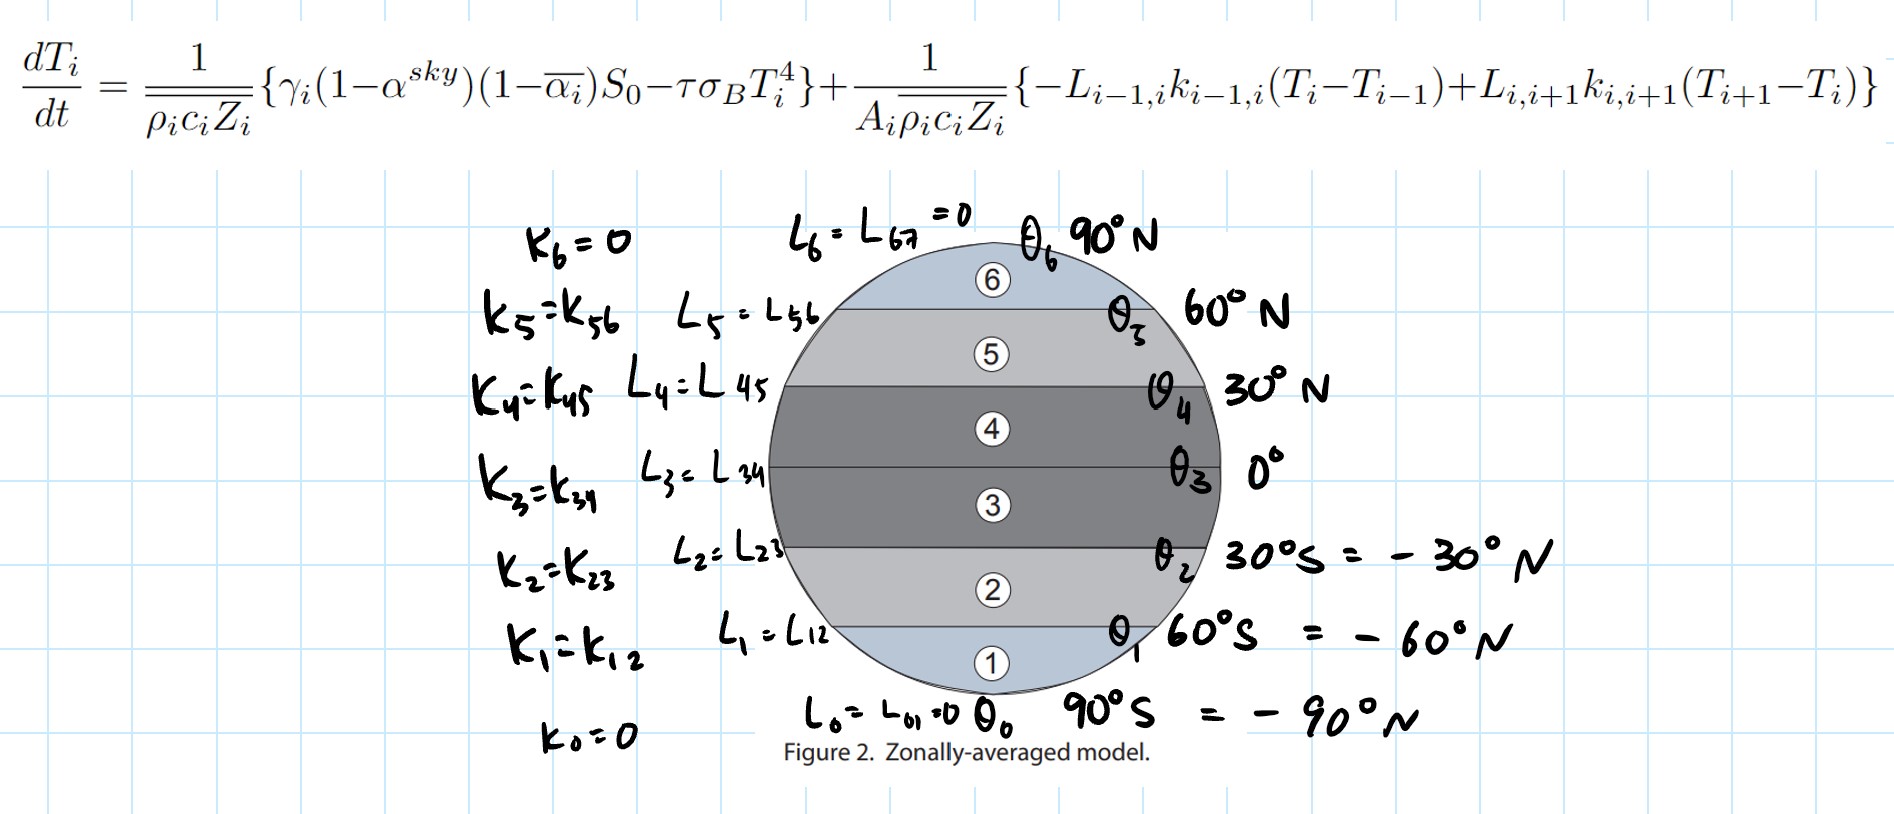 dT_i/dt = 1/\overline{ρ_i c_i Z_i} {γ_i(1−α^{sky})(1−\overline{α_i})S_0−τσ_B T_i^4}+ 1/(A_i \overline{ρ_i c_i Z_i}) {−L_{i−1,i}k_{i−1,i}(T_i−T_{i−1})+L_{i,i+1}k_{i,i+1}(T_{i+1}−T_i)}
K_6 = 0 L_6 = L_67 = 0 θ_6 90° N
6
K_5 = K_56 L_5 = L_56 θ_5 60° N
5
K_4 = K_45 L_4 = L_45 θ_4 30° N
4
K_3 = K_34 L_3 = L_34 θ_3 0°
3
K_2 = K_23 L_2 = L_23 θ_2 30°S = - 30° N
2
K_1 = K_12 L_1 = L_12 θ_1 60°S = - 60° N
1
K_0 = 0 L_0 = L_01 = 0 θ_0 90°S = - 90° N
Figure 2. Zonally-averaged model.